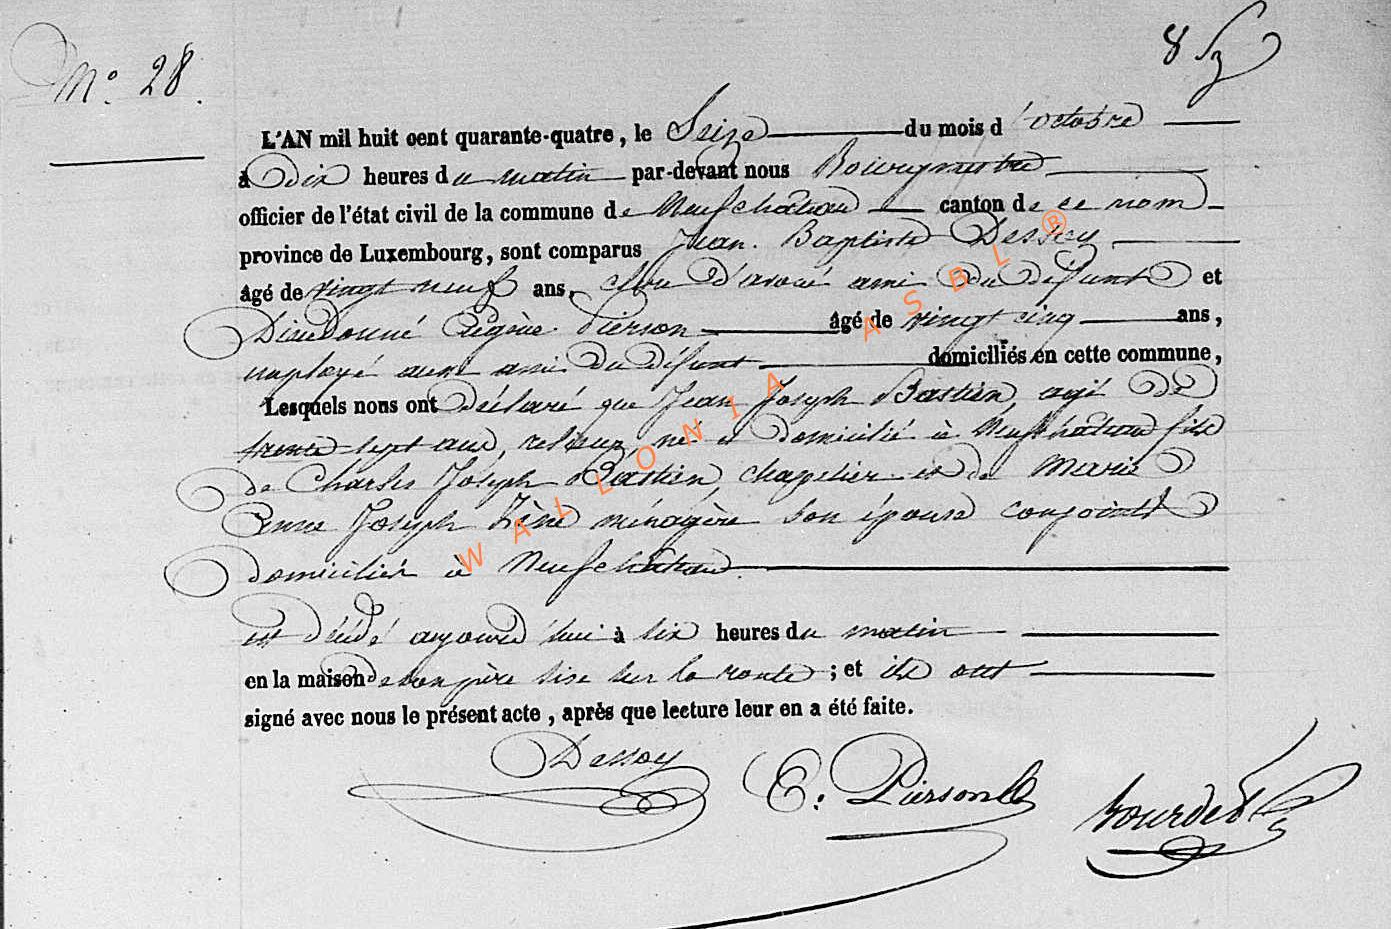 N.° 28.
8
L'AN mil huit cent quarante-quatre, le Seize du mois d'octobre
à Dix heures du matin par-devant nous Bourgmestre
officier de l'état civil de la commune de Neufchâteau canton de ce nom
province de Luxembourg, sont comparus Jean Baptiste Dessoy
âgé de vingt neuf ans, clerc d'avoué ami du défunt et
Dieudonné Eugène Pierson âgé de vingt cinq ans,
employé aussi ami du défunt domiciliés en cette commune,
Lesquels nous ont déclaré que Jean Joseph Bastien, agé de
trente sept ans, relieur, né et domicilié à Neufchâteau fils
de Charles Joseph Bastien, chapelier et de Marie
Anne Joseph ménagère son épouse conjoints
domiciliés à Neufchâteau
est décédé aujourd'hui à six heures du matin
en la maison de son père sise sur la route ; et ils ont
signé avec nous le présent acte, après que lecture leur en a été faite.
Dessoy E. Pierson
WALLONIA ASBL ®